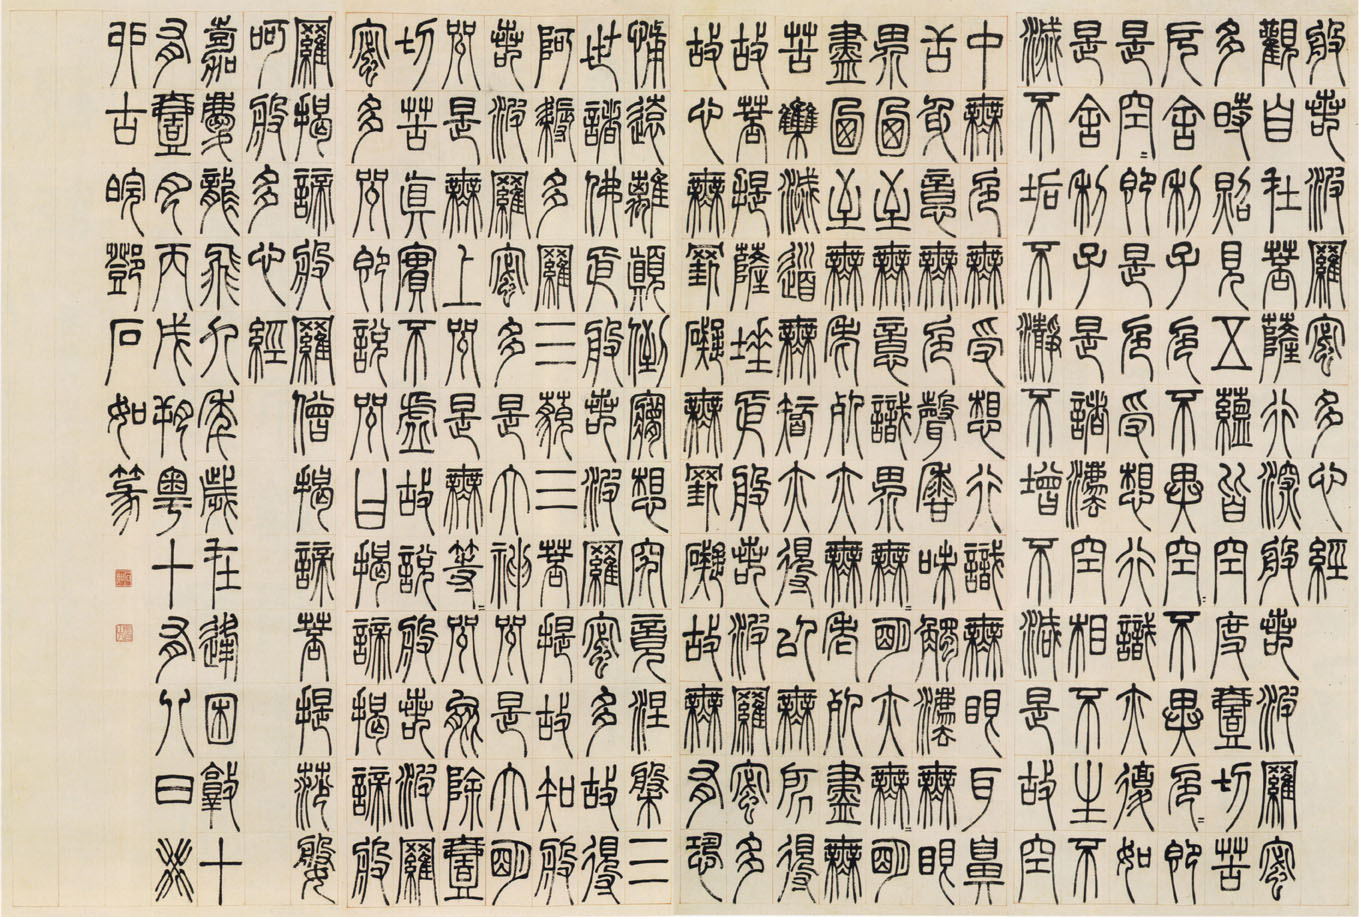 般若波羅蜜多心經
觀自在菩薩行深般若波羅蜜
多時照見五蘊皆空度壹切苦
厄舍利子色不異空〻不異色〻即
是空〻即是色受想行識亦復如
是舍利子是諸法空相不生不
滅不垢不淨不增不減是故空
中無色無受想行識無眼耳鼻
舌身意無色聲香味觸法無眼
界乃至無意識界無〻明亦無〻明
盡乃至無老死亦無老死盡無
苦集滅道無智亦得以無所得
故菩提薩埵依般若波羅蜜多
故心無罣礙無罣礙故無有恐
怖遠離顛倒夢想究竟涅槃三
世諸佛依般若波羅蜜多故得
阿耨多羅三藐三菩提故知般
若波羅蜜多是大神咒是大明
咒是無上咒是無等〻咒能除壹
切苦真實不虛故說般若波羅
蜜多咒即說咒曰揭諦揭諦般
羅揭諦般羅僧揭諦菩提莎婆
呵般多心經
嘉慶龍飛九年歲在逢困敦十
有壹月丙戌朔粵十有八日癸
卯古皖鄧石如篆